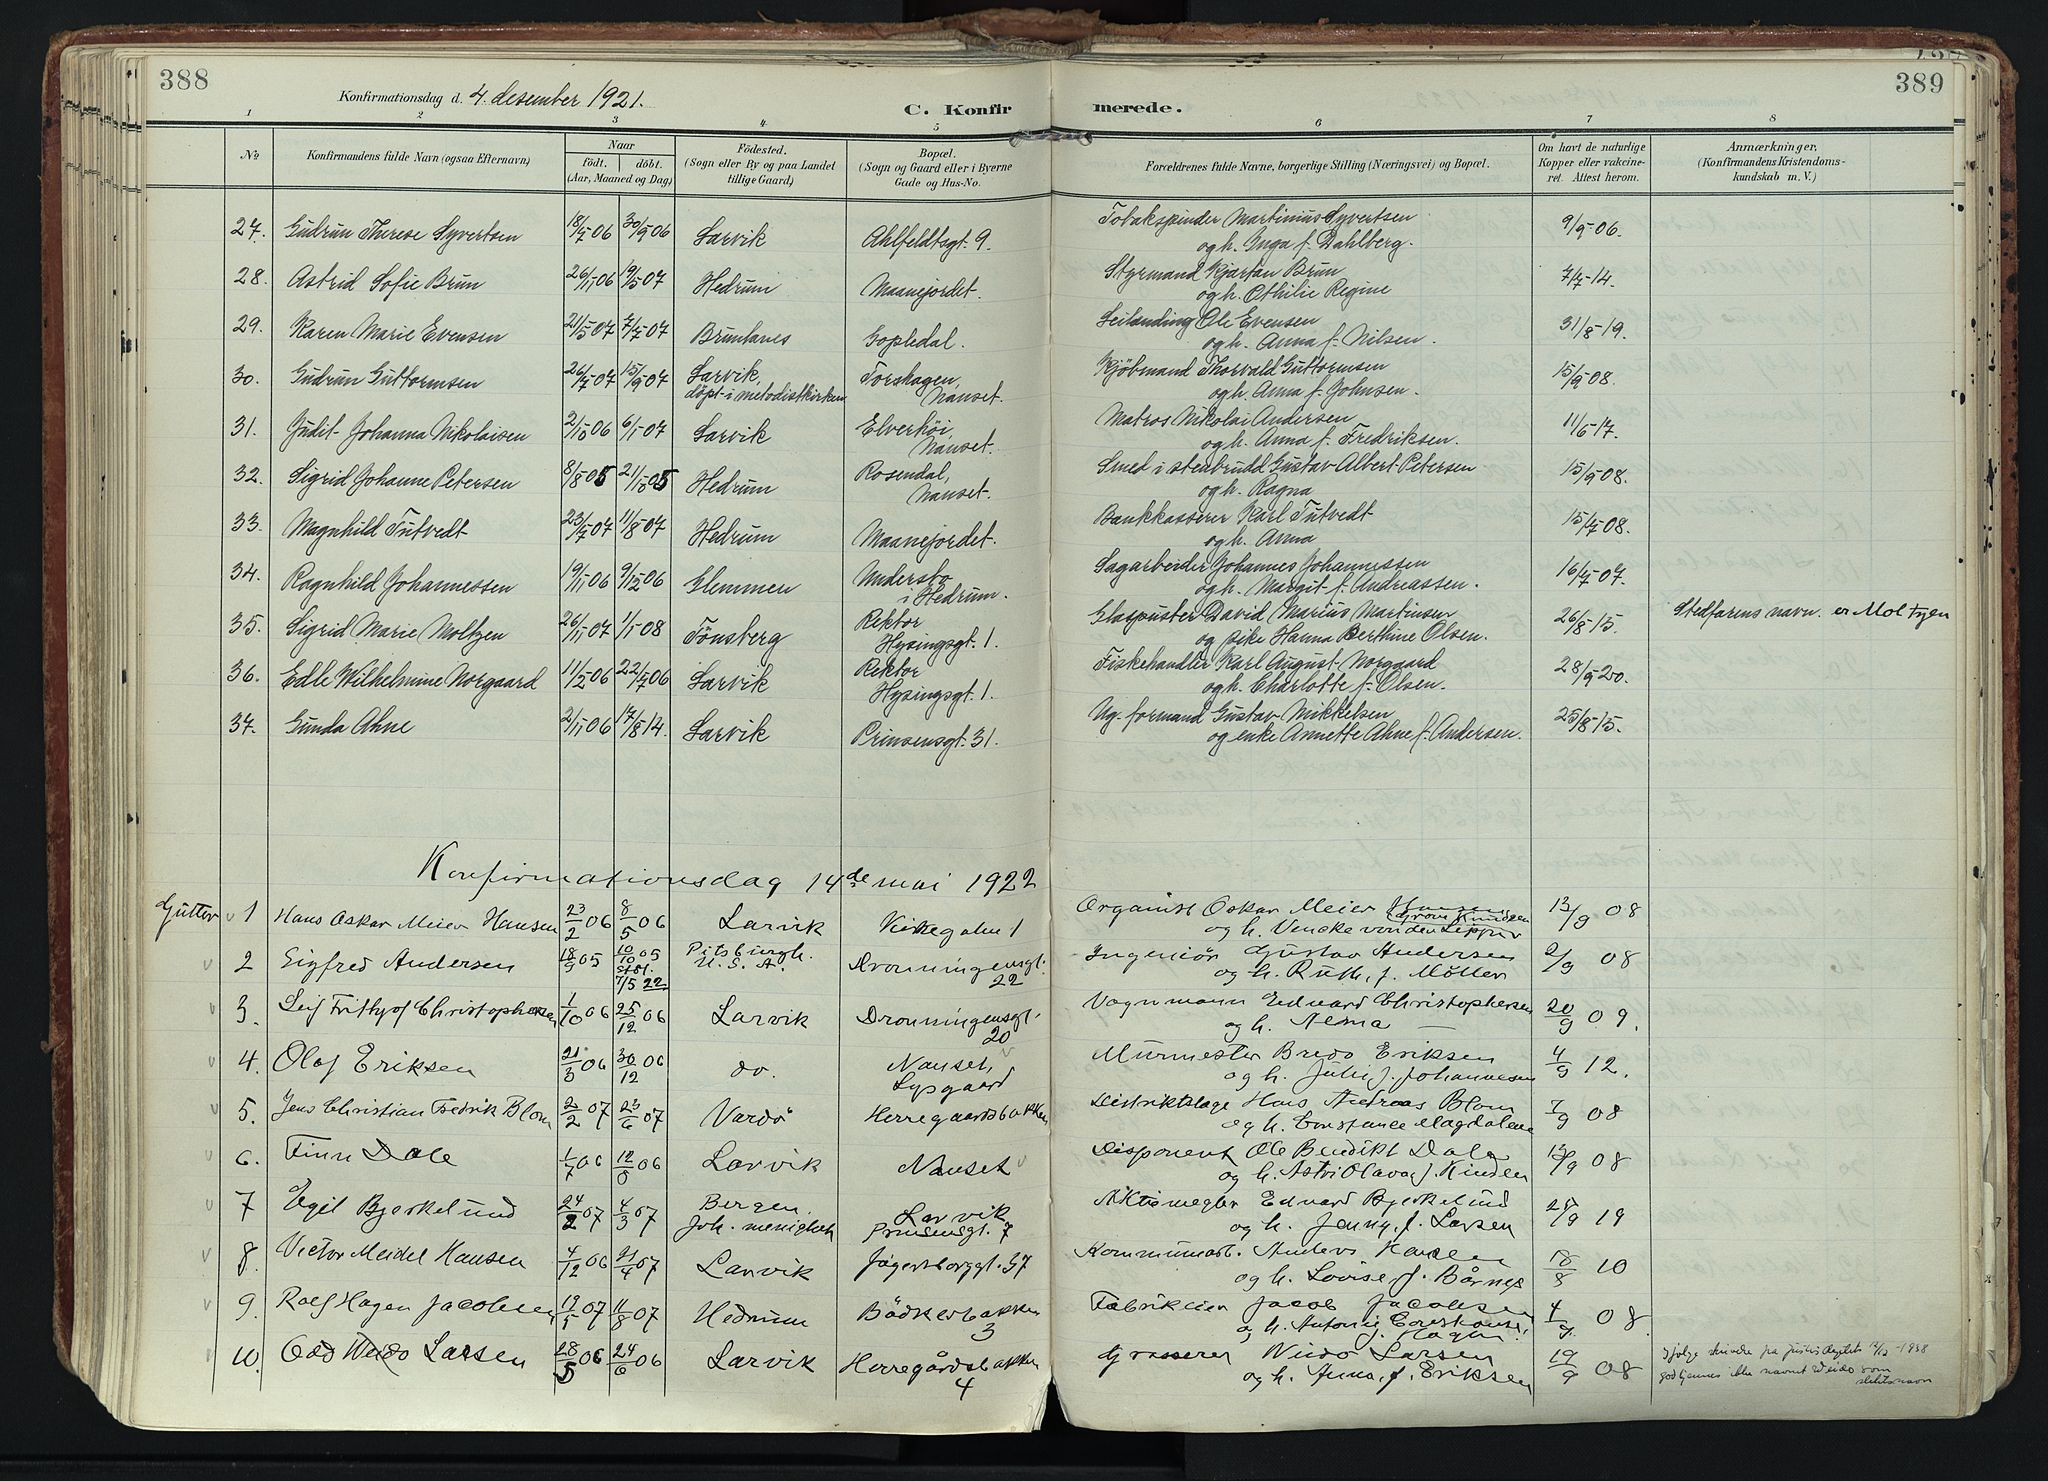 388
389
Konfirmationsdag d. 4. desember 1921.
C. Konfirmerede.
1 2 3 4 5 6 7 8
No. Konfirmandens fulde Navn (ogsaa Efternavn) Naar födt. döbt. (Aar, Maaned og Dag) Födested. (Sogn eller By og paa Landet tillige Gaard) Bopæl. (Sogn og Gaard eller i Byerne Gade og Hus-No. Forældrenes fulde Navne, borgerlige Stilling (Næringsvei) og Bopæl. Om havt de naturlige Kopper eller vakcineret. Attest herom. Anmærkninger. (Konfirmandens Kristendomskundskab m. V.)
27. Gudrun Therese Syvertsen 18/7 06 30/9 06 Larvik Ahlfeldtsgt. 9. Tobakspinder Martinius Syvertsen 9/9-06.
og h. Inga f. Dahlberg.
28. Astrid Sofie Brun 26/11 06 19/5 07 Hedrum Maanejordet. Styrmand Kjartan Brun 7/7-14.
og h. Othilie Regine
29. Karen Marie Evensen 21/5 07 7/7 07 Brunlanes Gopledal. Leilænding Ole Evensen 31/8-19.
og h. Anna f. Nilsen.
30. Gudrun Guttormsen 26/7 07 15/9 07 Larvik, Torshagen, Kjöbmand Thorvald Guttormsen 15/9-08.
döpt i metodistkirken Nanset. og h. Anna f. Johnsen.
31. Judit Johanna Nikolaisen 2/10 06 6/1 07 Larvik Elverhöi, Matros Nikolai Andersen 11/6-17.
Nanset. og h. Anna f. Fredriksen.
32. Sigrid Johanne Petersen 8/8 05 21/10 05 Hedrum Rosendal, Smed i stenbrudd Gustav Albert Petersen 15/9-08.
Nanset. og h. Ragna
33. Magnhild Tutvedt 23/7 07 11/8 07 Hedrum Maanejordet. Bankkasserer Karl Tutvedt 15/7-08.
og h. Anna
34. Ragnhild Johannessen 19/11 06 9/12 06 Glemmen Undersbo Sagarbeider Johannes Johannessen 16/7-07.
i Hedrum. og h. Margit f. Andreassen.
35. Sigrid Marie Moltzen 26/11 07 1/1 08 Tönsberg Rektor Glaspuster David Marius Martinsen 26/8-15. Stedfarens navn er Moltzen
Hysingsgt. 1. og pike Hanna Berthine Olsen.
36. Edle Wilhelmine Norgaard 11/2 06 22/7 06 Larvik Rektor Fiskehandler Karl August Norgaard 28/9-20.
Hysingsgt. 1. og h. Charlotte f. Olsen.
37. Gunda Ahne 2/11 06 17/8 14. Larvik Prinsensgt. 31. Ug. formand Gustav Mikkelsen 25/8-15.
og enke Annette Ahne f. Andersen.
Konfirmationsdag 14de mai 1922
Gutter 1 Hans Oskar Meier Hansen 23/2 06 8/5 06 Larvik Organist Oskar Meier Hansen 13/9 08
og h. Vencke von den Lippe
2 Sigfred Andersen 18/9 05 10/10 05 Pitsburgh. Dronningensgt. Ingeniör Gustav Andersen 2/9 08
7/5 22 U.S.A. 22 og h. Ruth, f. Möller
3. Leif Frithjof Christophersen 1/10 06 25/12 06 Larvik Dronningensgt. Vognmann Edvard Christophersen 20/9 09.
20 og h. Alma
4. Olaf Eriksen 21/3 06 30/12 06 do. Nanset, Murmester Bredo Eriksen 4/9 12.
Lysgaard og h. Julie f. Johannesen
5. Jens Christian Fredrik Blom 2/2 07 23/6 07 Vardö Herregaardsbakken Distriktslæge Hans Andreas Blom 7/9 08
og h. Constance Magdalene
6. Finn Dale 1/7 06 12/8 06 Larvik Nanset Disponent Ole Benedikt Dale 12/9 08
og h. Astri Olava f. Kinden
7 Egil Bjerkelund 24/2 07 4/3 07 Bergen. Larvik Aktiemegler Edvard Bjerkelund 25/9 19
Joh. menighet Prinsensgt. 7 og h. Jenny, f. Larsen
8. Victor Meidel Hansen 4/12 06 21/4 07 Larvik Jägersborggt. 37 Kommunearb. Anders Hansen 18/8 10
og h. Lovise, f.
9. Rolf Hagen Jacobsen 19/5 07 11/8 07 Hedrum Bödkerbakken Fabrikeier Jacob Jacobsen 4/9 08
3 og h. Antonie f. Hagen
10. Odd Weido Larsen 28/5 06 24/6 06 Larvik Herregårdsbakken Grosserer Weido Larsen 19/9 08 Ifølge skrivelse fra justisdeptet 1938
4 og h. Anna, f. Eriksen godkjennes ikke navnet Weido som slektsnavn